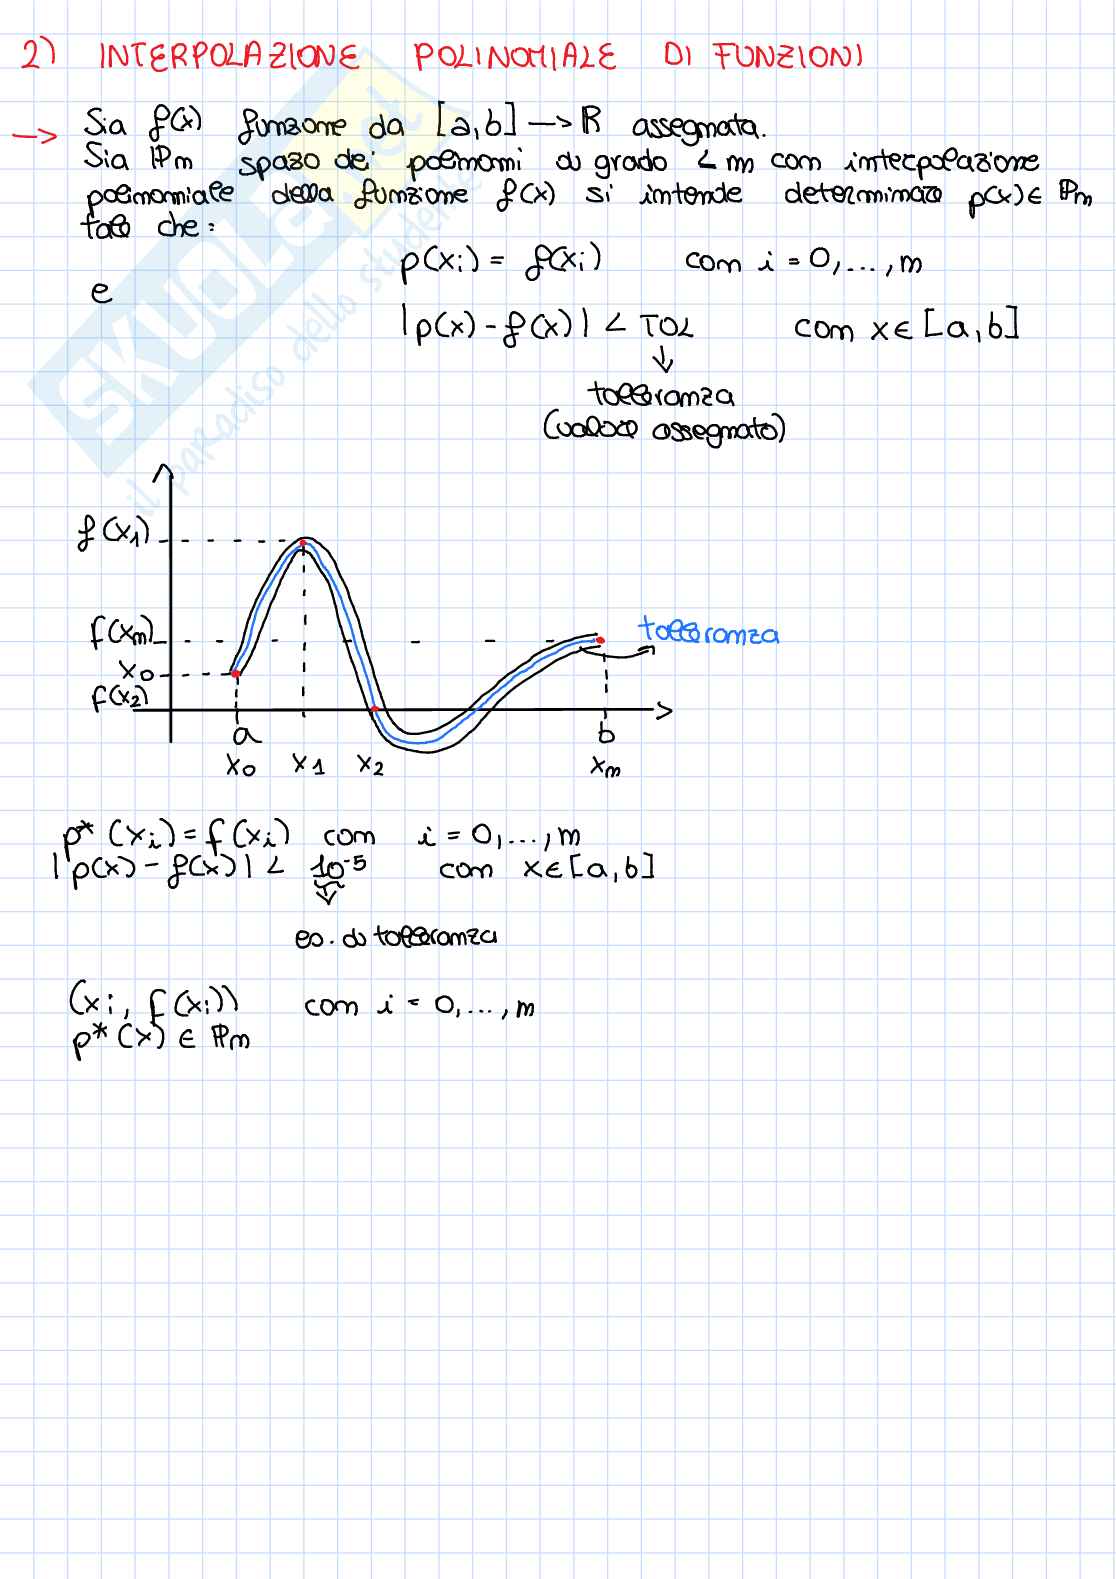 2) INTERPOLAZIONE POLINOMIALE DI FUNZIONI
→ Sia f(x) funzione da [a,b] → R assegnata.
Sia Pn spazo dei polinomi di grado < n con interpolazione
polinomiale della funzione f(x) si intende determinare p(x) ∈ Pn
tale che:
p(xi) = f(xi) con i = 0,...,n
e
|p(x) - f(x)| < TOL con x ∈ [a,b]
↓
tolleranza
(valore assegnato)
f(x1)
f(xn)
tolleranza
x0
f(x2)
a b
x0 x1 x2 xn
p* (xi) = f(xi) con i = 0,...,n
|p(x) - f(x)| < 10^-5 con x ∈ [a,b]
↓
es. di tolleranza
(xi, f(xi)) con i = 0,...,n
p* (x) ∈ Pn
SKUOLA.net
il paradiso dello studente